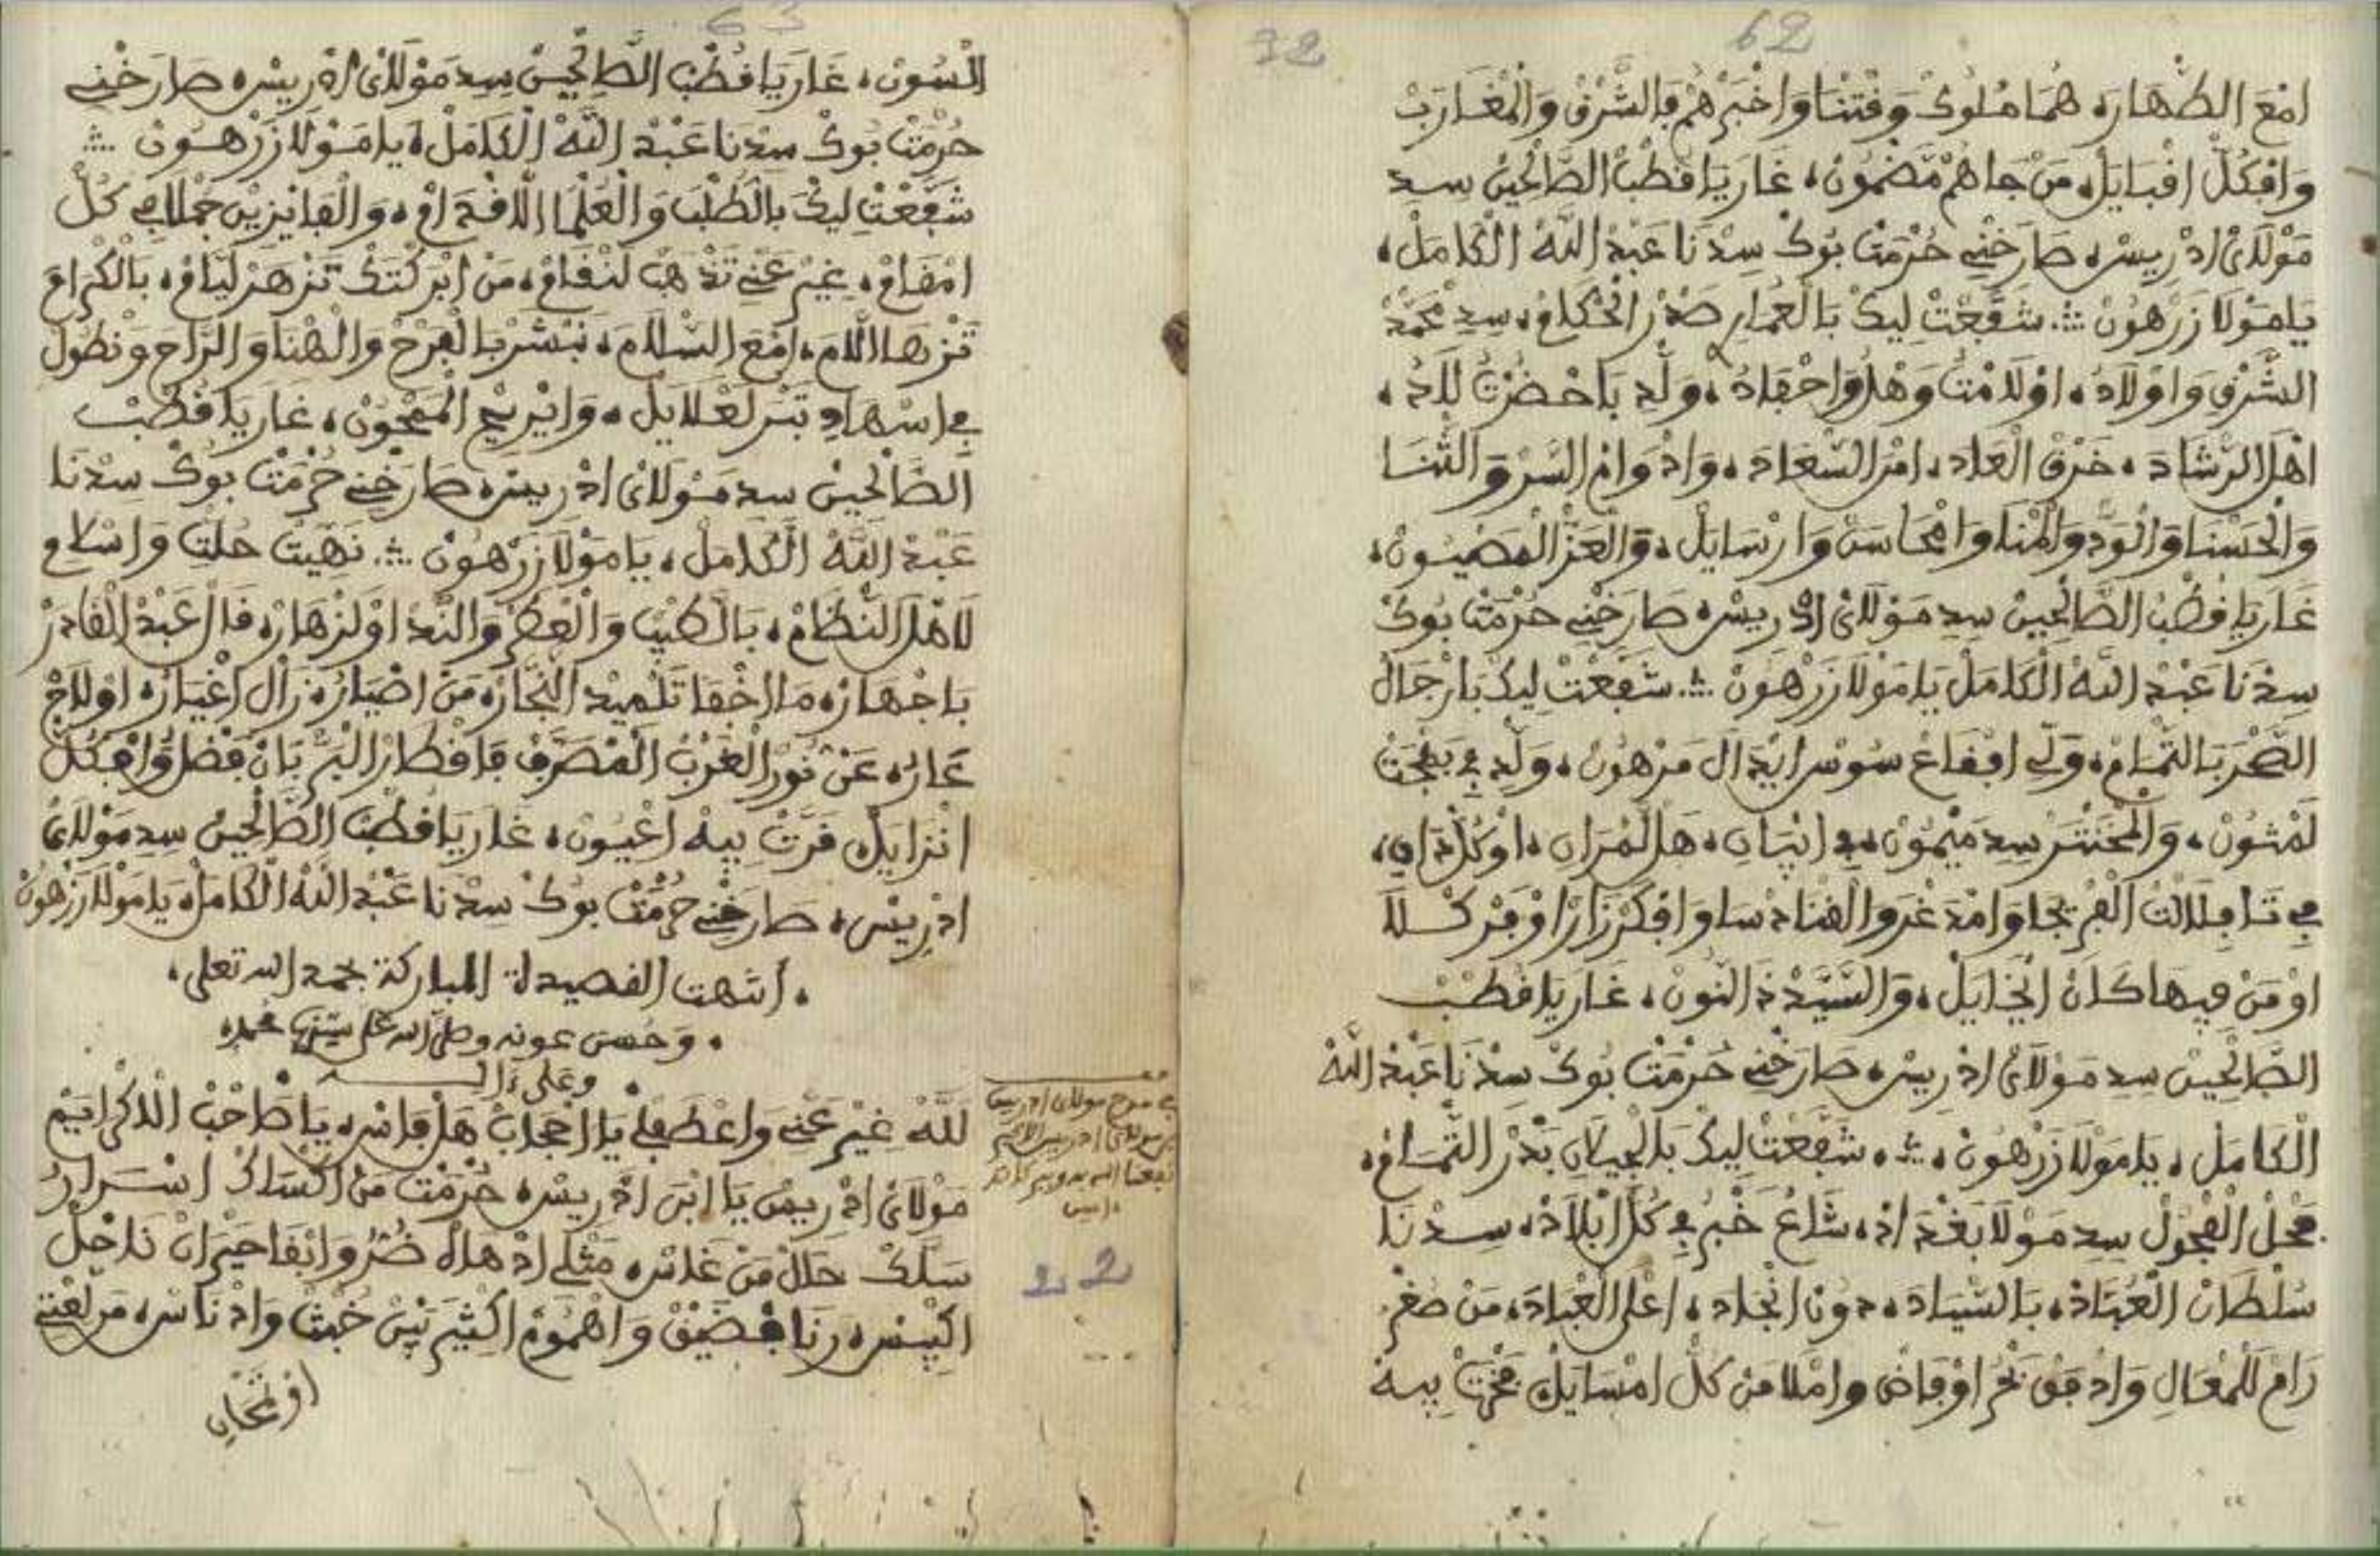 62
32
امع الطهاره هما ملوك وقتنا واخبرهم بالشرق والمغارب
وافكل اقبايل من جاهم مضمون، غار يا قطب الصالحين سيد
مولاي ادريس، صارخني حرمة بوك سيدنا عبد الله الكامل،
يا مولا زرهون ؞ شفعت ليك بالعمار صدر الحكام، سيد محمد
الشرقي واولاد، اولامت وهلو احفاد، ولد باحضرت للاد،
اهل الرشاد، خرق العاد، امر السعاد، وادوام السر والثنا
والحسنا والود والمنا وامحاسن وارسايل، والعز المصيون،
غار يا قطب الصالحين سيد مولاي ادريس، صارخني حرمة بوك
سيدنا عبد الله الكامل يا مولا زرهون ؞ شفعت ليك بارجال
الصحر بالتمام، ولي افقاع سوس ايدال مرهون، ولد في بهجت
لمثون، والمحنتر سيد ميمون، في انيان، هل لمران، اوكل دان،
في تافلالت الفرجا وامدغر والفنادسا وافكرزازا وفركلا
او من فيها كان انخايل، والسيد ذ النون، غار يا قطب
الصالحين سيد مولاي ادريس، صارخني حرمة بوك سيدنا عبد الله
الكامل، يا مولا زرهون، ؞، شفعت ليك بالجيلان بدر التمام،
فحل الفحول سيد مولا بغداد، شاع خبر في كل ابلاد، سيدنا
سلطان العباد، بالسياد، دون انجاد، اعل العباد، من صغر
رام للمعال وادفق بحر اوفاض واملا من كل امسايل فخرت بيه
63
السون، غار يا قطب الصالحين سيد مولاي ادريس، صارخني
حرمة بوك سيدنا عبد الله الكامل، يا مولا زرهون ؞
شفعت ليك بالطلب والعلما اللافدام، والفايزين جملا في كل
امقام، غير عني تذهب لنقام، من ابركتك تزهر ليام، بالكرام
تزها اللام، امع السلام، نبشر بالفرح والهنا والراح ونطول
في اسهاد تبر لعلايل، وايريح الممحون، غار يا قطب
الصالحين سيد مولاي ادريس، صارخني حرمة بوك سيدنا
عبد الله الكامل، يا مولا زرهون ؞ نهيت حلت واسلام
لاهل النظام، بالطيب والعطر والند اولزهار، قال عبد القادر
باجهار، ما اخفا تلميد النجار، من اضيار، زال اغيار، اولاج
عار، عن نور الغرب المصرف فاقطار البر بان فضل وافكل
انزايل، قرت بيه اعيون، غار يا قطب الصالحين سيد مولاي
ادريس، صارخني حرمة بوك سيدنا عبد الله الكامل، يا مولا زرهون
، انتهت القصيدة المباركة بحمد الله تعلى،
، وحسن عونه وصلى الله على سيدنا محمد،
، وعلى ءاله
لله غير عني واعطف لي يا اعجاب هل فاس، يا صاحب الاكرايم
مولاي ادريس يا ابن ادريس، حرمة من اكساك اسرار
سلك حال من غلاس، مثلي ادهاه ضر وابقا حيران ناحل
اكبيس، رنا فضيق واهموم اكثير بين خبث وادناس، مر لعني
او تمحان
في مدح مولاي ادريس
بن مولاي ادريس الاكبر
نفعنا الله به وببركاته
، امين
22